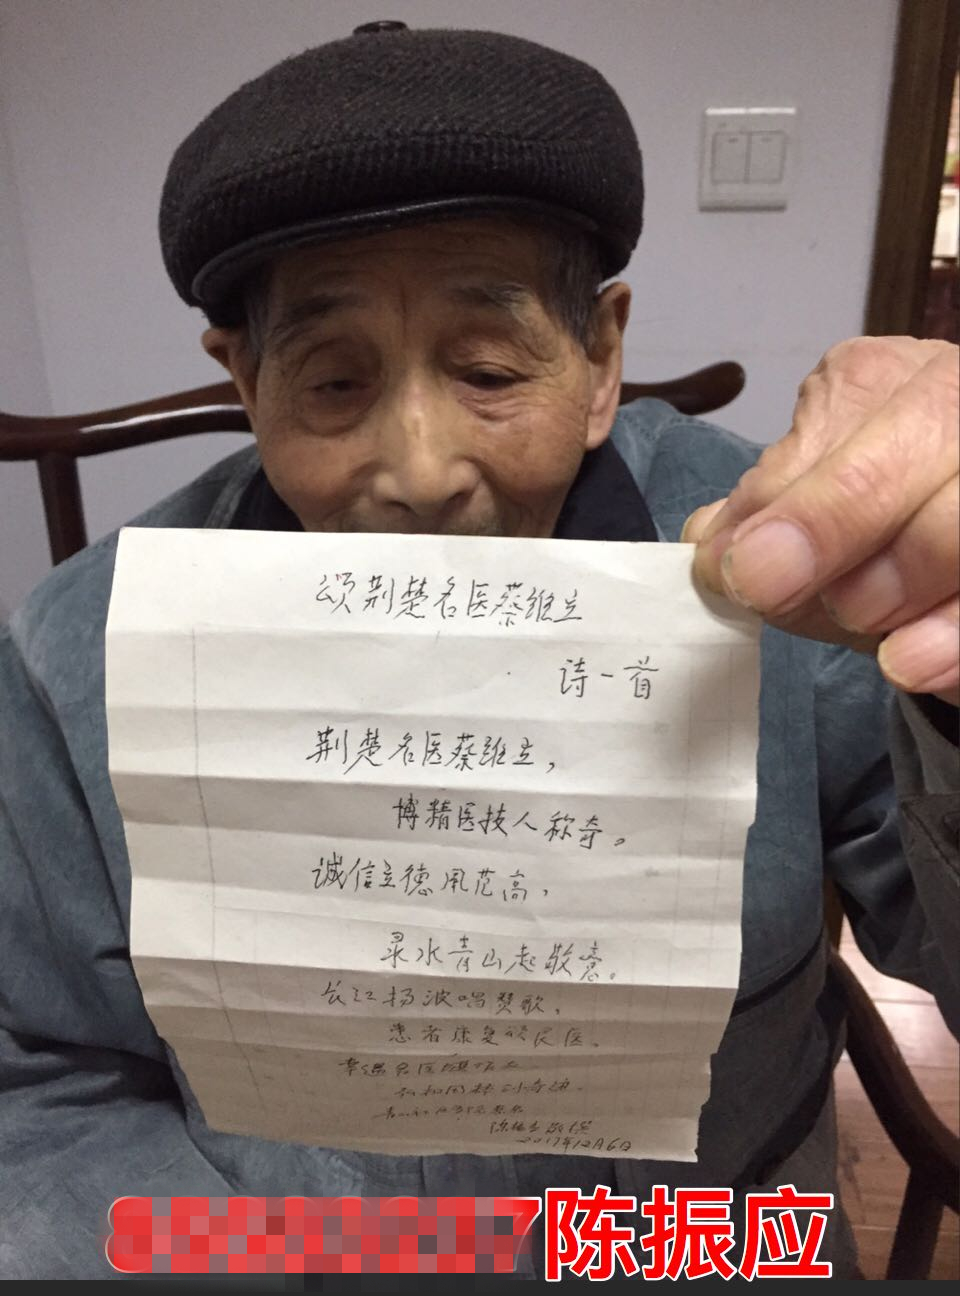 颂荆楚名医蔡维立
诗一首
荆楚名医蔡维立，
博精医技人称奇。
诚信立德风范高，
录水青山起敬意。
长江扬波唱赞歌，
患者康复颂良医。
幸遇名医
创奇迹
陈振应敬撰
2017年12月6日
7陈振应